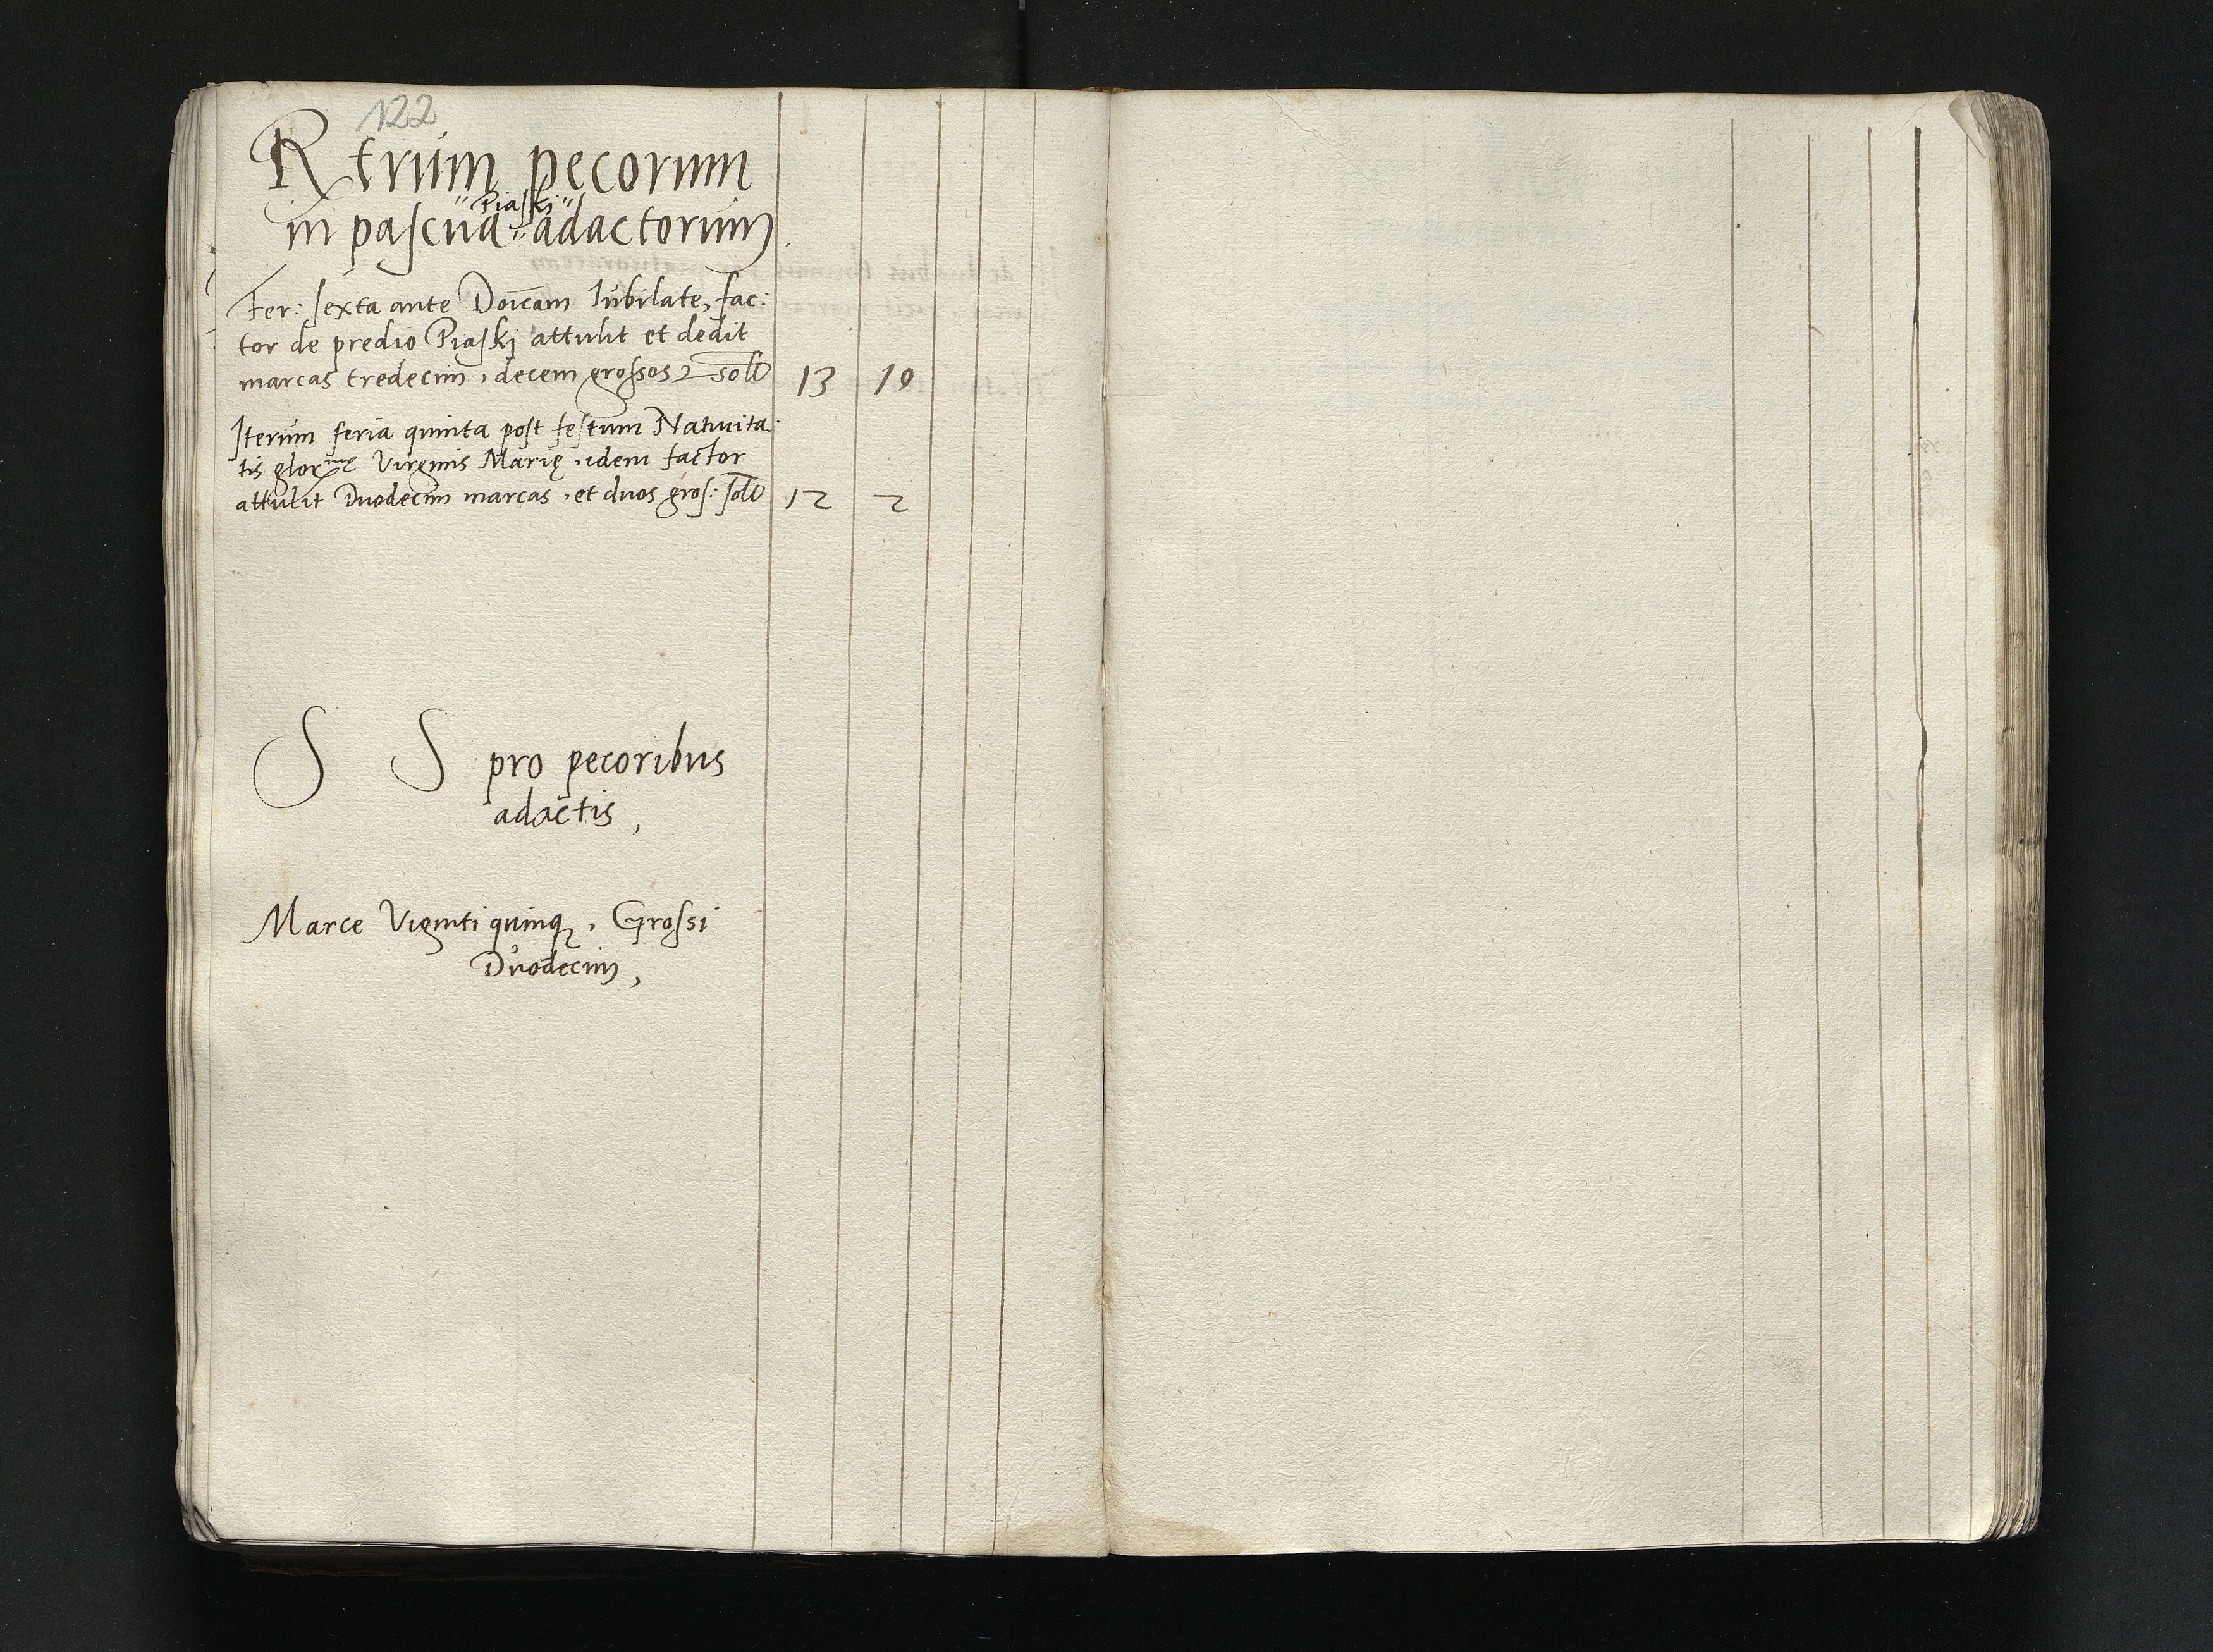 122
R trum pecorum
"Piaskj"
in pascua " adactorum
Fer: sexta ante Doīcam Iubilate, fac:
tor de predio Piaskj attulit et dedit
marcas tredecim, decem grossos 13 10
Iterum feria quinta post festum Nativita:
tis glor^me Virginis Marię, idem factor
attulit Duodecim marcas, et duos gros: 12 2
S S pro pecoribus
adactis,
Marce Viginti quinqꝫ, Grossi
Duodecim,